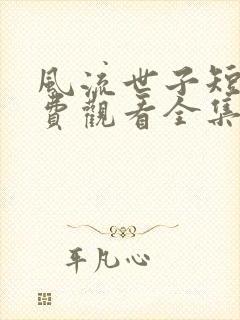 風流世子短
費觀看全集
平凡心